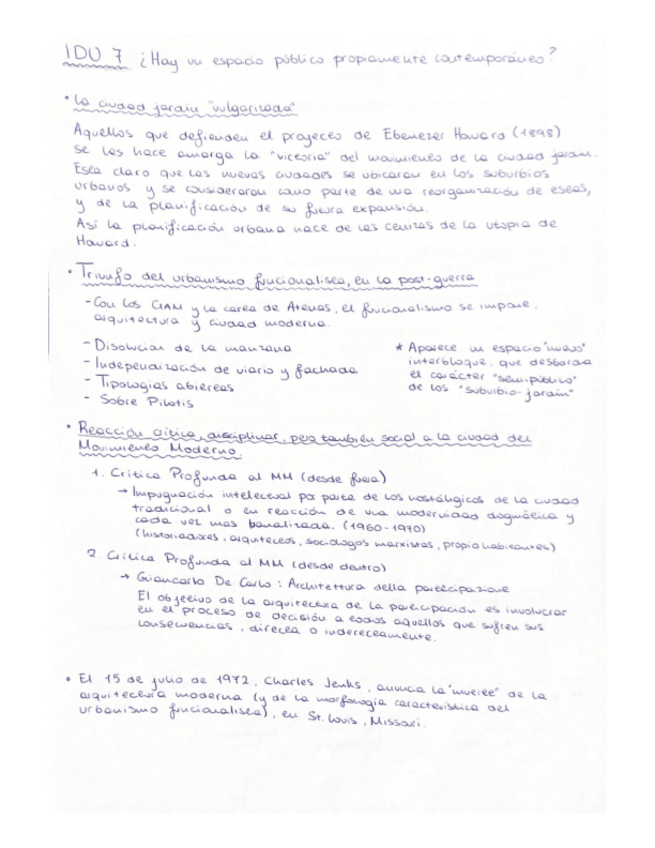 IDU 7 ¿Hay un espacio público propiamente contemporáneo?
• La ciudad jardín "vulgarizada"
Aquellos que defienden el proyecto de Ebenezer Howard (1898)
se les hace amarga la "victoria" del movimiento de la ciudad jardín.
Esta claro que las nuevas ciudades se ubicaran en los suburbios
urbanos y se consideraran como parte de una reorganización de estos,
y de la planificación de su futura expansión.
Así la planificación urbana nace de las cenizas de la utopía de
Howard.
• Triunfo del urbanismo funcionalista, en la post-guerra
- Con los CIAM y la carta de Atenas, el funcionalismo se impone.
arquitectura y ciudad moderna.
- Disolución de la manzana
- Independización de viario y fachada
- Tipologías abiertas
- Sobre Pilotis
* Aparece un espacio "nuevo"
interbloque, que desborda
el carácter "semipúblico"
de los "suburbio-jardín"
• Reacción crítica, disciplinar, pero también social a la ciudad del
Movimiento Moderno.
1. Crítica Profunda al MM (desde fuera)
→ Impugnación intelectual por parte de los nostálgicos de la ciudad
tradicional o en reacción de una modernidad dogmática y
cada vez mas banalizada. (1960-1970)
(historiadores, arquitectos, sociólogos marxistas, propio habitantes)
2. Crítica Profunda al MM (desde dentro)
→ Giancarlo De Carlo: Architettura della partecipazione
El objetivo de la arquitectura de la participación es involucrar
en el proceso de decisión a todos aquellos que sufren sus
consecuencias, directa o indirectamente.
• El 15 de julio de 1972, Charles Jenks, anuncia la "muerte" de la
arquitectura moderna (y de la morfología característica del
urbanismo funcionalista), en St. Louis, Missouri.